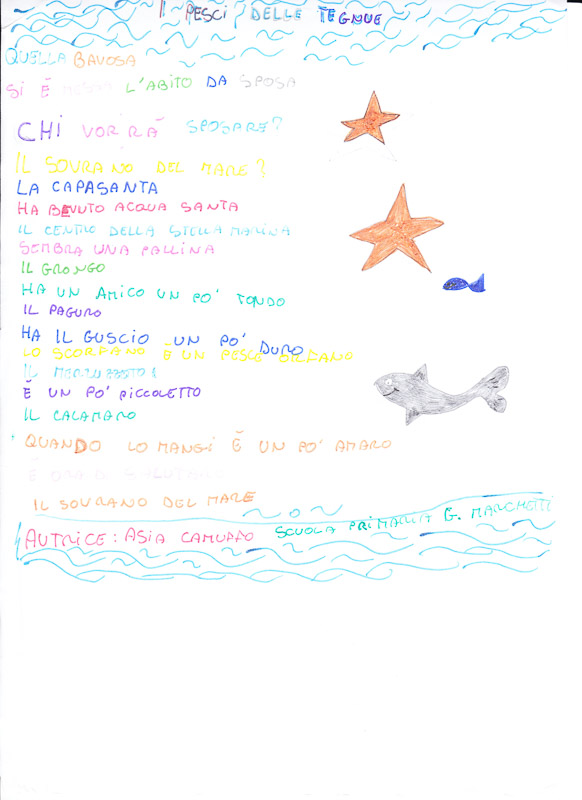 I PESCI DELLE TEGNUE
QUELLA BAVOSA
SI È MESSA L'ABITO DA SPOSA
CHI VORRÀ SPOSARE?
IL SOVRANO DEL MARE?
LA CAPASANTA
HA BEVUTO ACQUA SANTA
IL CENTRO DELLA STELLA MARINA
SEMBRA UNA PALLINA
IL GRONGO
HA UN AMICO UN PO' TONDO
IL PAGURO
HA IL GUSCIO UN PO' DURO
LO SCORFANO È UN PESCE
IL MERLUZZETTO
È UN PO' PICCOLETTO
IL CALAMARO
QUANDO LO MANGI È UN PO' AMARO
È ORA DI
IL SOVRANO DEL MARE
AUTRICE: ASIA CAMUFFO SCUOLA PRIMARIA G. MARCHETTI